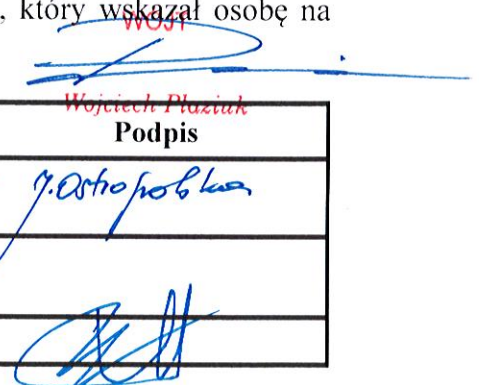 , który wskazał osobę na
WÓJT
Wojciech Płaziuk
Podpis
J. Ostropolska